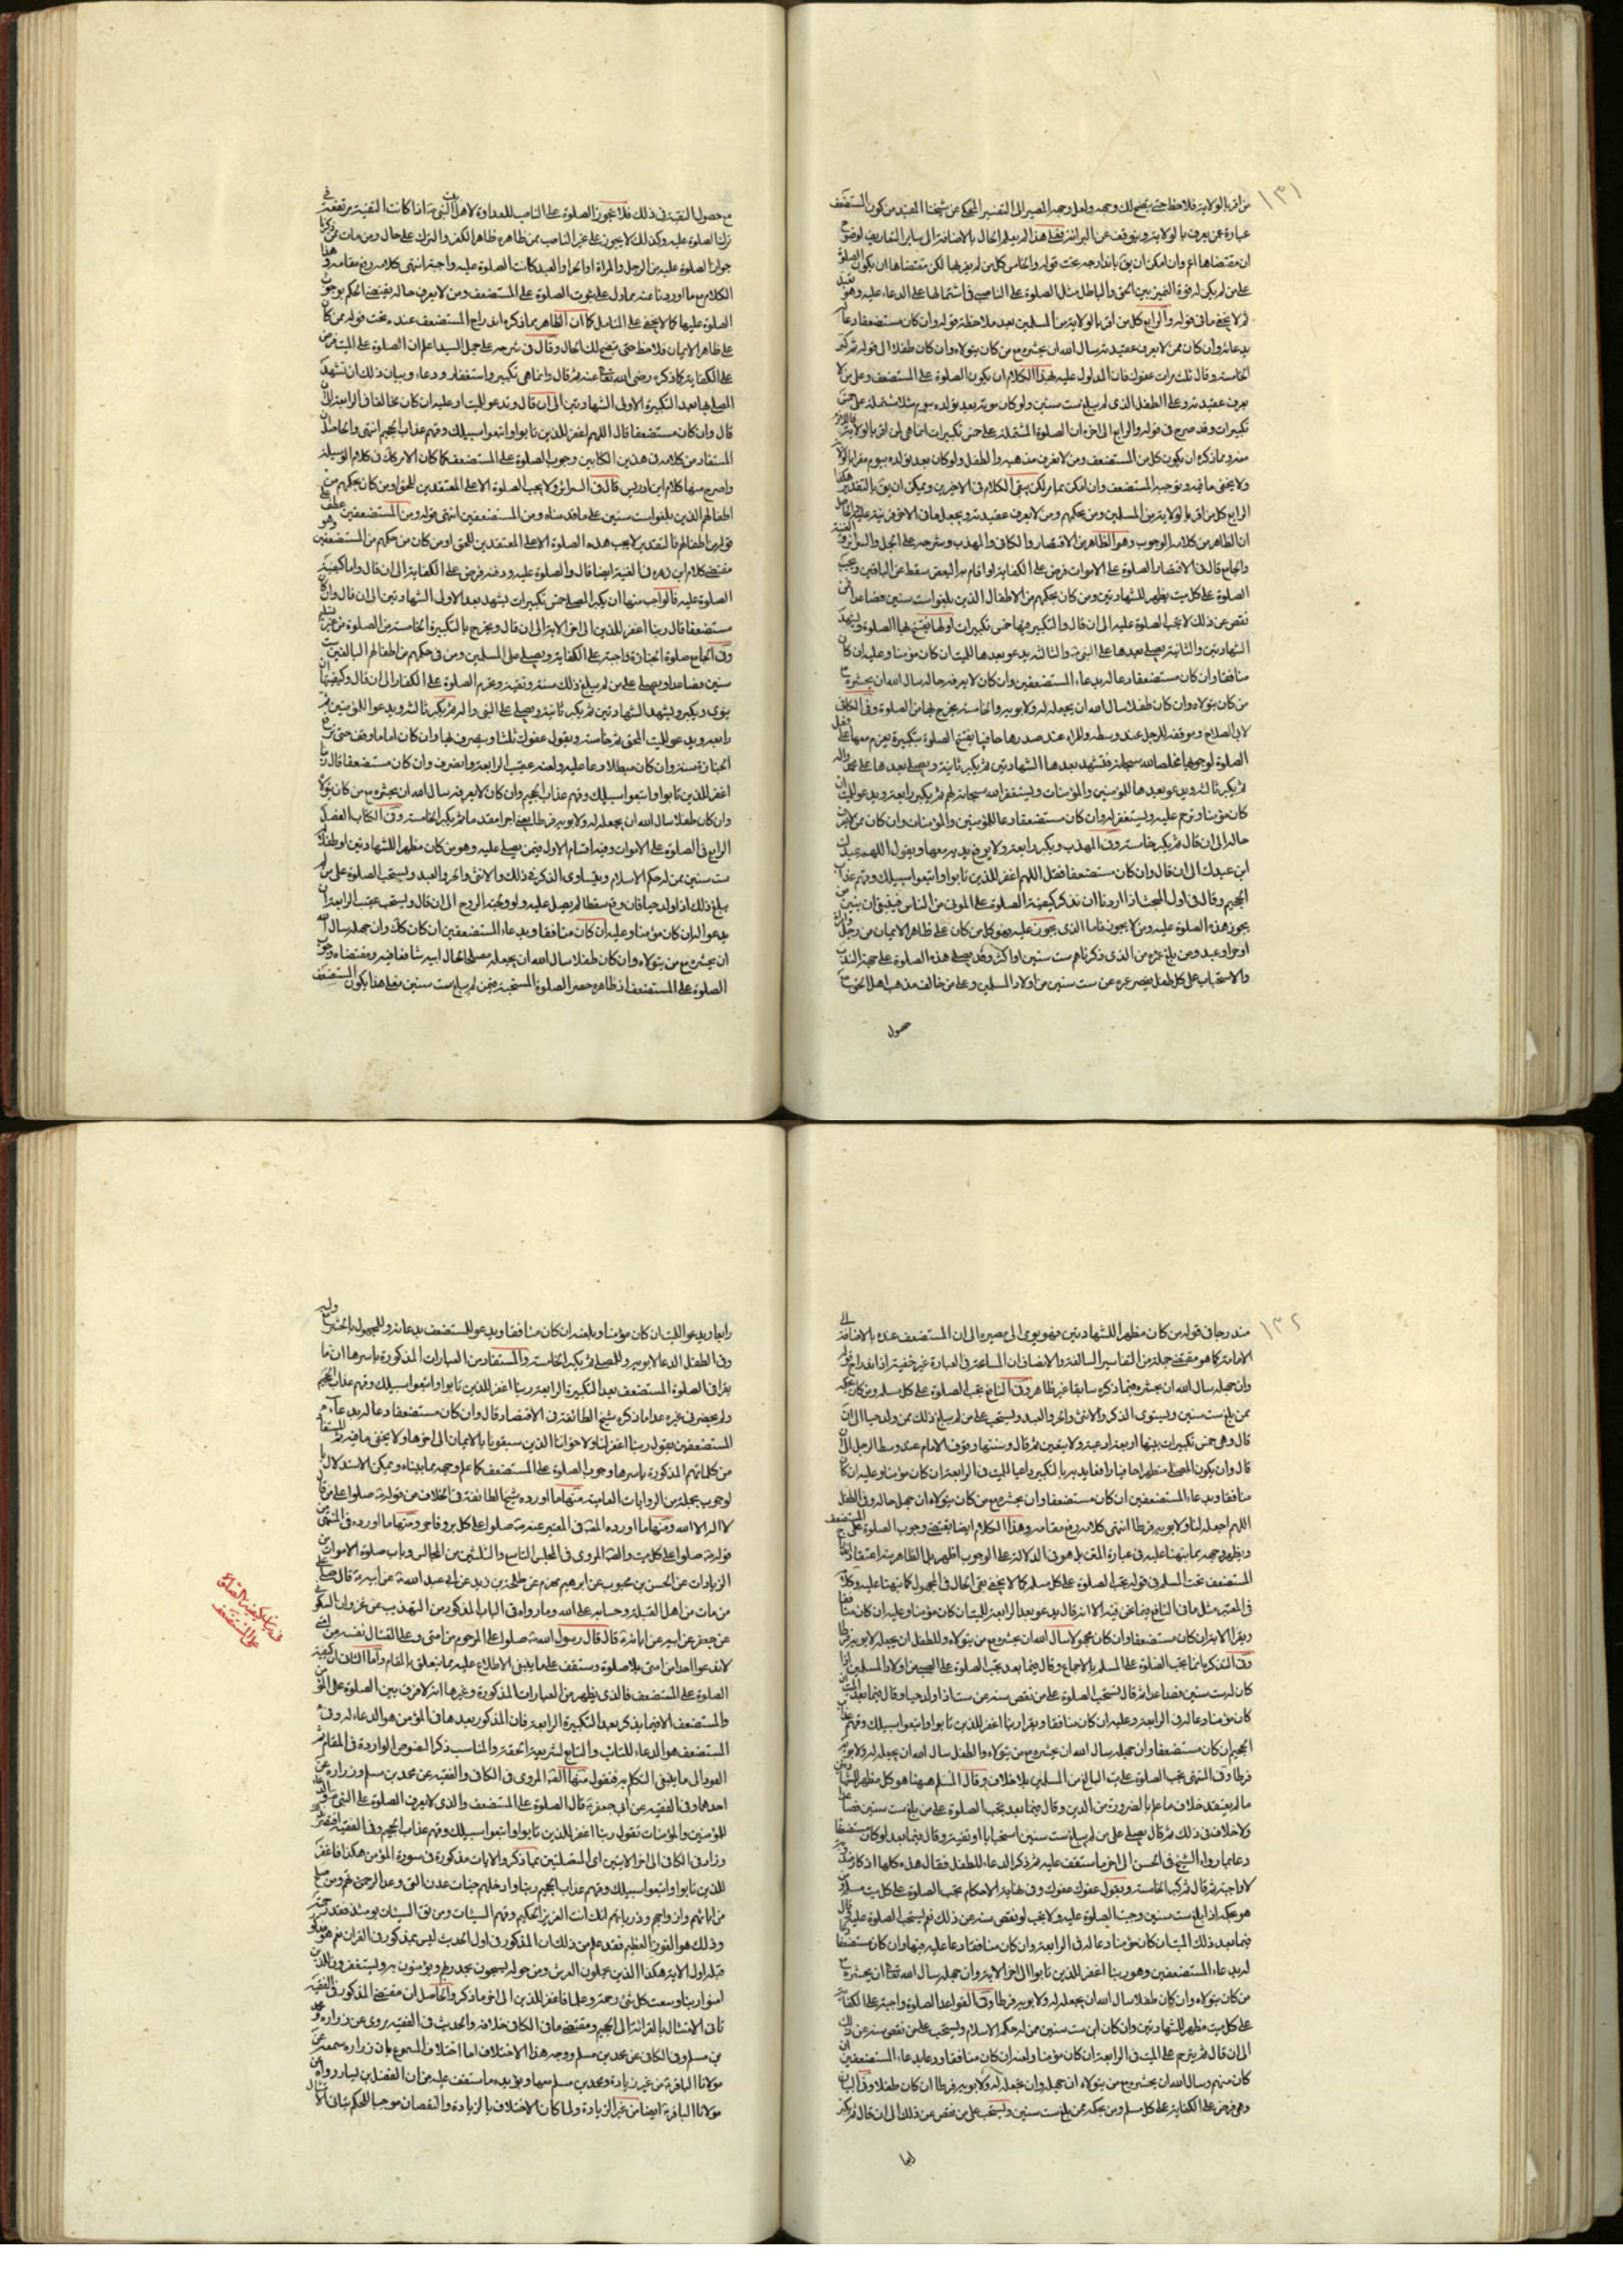 ١٣١
من اقر بالولاية فلاحظ حتى يتضح لك وجهه ولعل وجهه المصير الى التفسير المحكي عن شيخنا المفيد من كون المستضعف
عبارة عمن يعرف بالولاية ويتوقف عن البرائة فعلى هذا لم يعلم الحال بالاضافة الى ساير التفاسير لوضوح
على من لم يكن له قوة التميز بين الحق والباطل مثل الصلوة على الناصبى فى اشتمالها على الدعاء عليه وهو
ثم لا يخفى ما فى قوله والرابع كل من اقر بالولاية من المسلمين بعد ملاحظة قوله وان كان مستضعفا دعا
بدعائه وان كان ممن لا يعرف عقيدته سال الله ان يحشره مع من كان يتولاه وان كان طفلا الى قوله ثم كبر
الخامسة وقال ثلث مرات عفوك فان المدلول عليه بهذا الكلام ان يكون الصلوة على المستضعف وعلى من لا
يعرف عقيدته وعلى الطفل الذى لم يبلغ ست سنين ولو كان موته بعد تولده بيوم مثلا مشتملة على خمس
ولا يخفى ما فيه وتوجيه المستضعف وان امكن بما مر لكن يبقى الكلام فى الاخيرين ويمكن ان يق بالتقدير هكذا
الرابع كل من اقر بالولاية من المسلمين ومن بحكمهم ومن لا يعرف عقيدته
ان الظاهر من كلامه الوجوب وهو الظاهر من الاقتصار والكافى والمهذب وشرحه على الجمل والسرائر
والجامع قال فى الاقتصاد الصلوة على الاموات فرض على الكفاية اذا قام به البعض سقط عن الباقين وتجب
الصلوة على كل ميت يظهر للشهادتين ومن كان بحكمهم من الاطفال الذين بلغوا ست سنين فصاعدا فمن
نقص عن ذلك لا يجب الصلوة عليه الى ان قال والتكبير فيها خمس تكبيرات اولها يفتتح بها الصلوة ويشهد
الشهادتين والثانية يصلى بعدها على النبى والثالثة يدعو بعدها للميت ان كان مؤمنا وعليه ان كان
منافقا وان كان مستضعفا دعا له بدعاء المستضعفين وان كان لا يعرفه حاله سال الله ان يحشره مع
من كان يتولاه وان كان طفلا سال الله ان يجعله له ولابويه والخامسة يخرج بها من الصلوة وفى الكافى
ثم يكبر ثالثة ويدعو بعدها للمؤمنين والمؤمنات ويستغفر الله سبحانه لهم ثم يكبر رابعة ويدعو للميت ان
كان مؤمنا ويترحم عليه ويستغفر له وان كان مستضعفا دعا للمؤمنين والمؤمنات وان كان ممن لا يعرف
حاله الى ان قال ثم يكبر خامسة وفى المهذب ويكبر رابعة ولا يرفع يديه معها ويقول اللهم عبدك
ابن عبدك الى ان قال وان كان مستضعفا فقل اللهم اغفر للذين تابوا واتبعوا سبيلك وقهم عذاب
الجحيم وقال فى اول المبحث اذا اردنا ان نذكر كيفية الصلوة على الموتى من الناس فينبغى ان نبين من
يجوز هذه الصلوة عليه ومن لا يجوز فاما الذى يجوز عليه فهو كل من كان على ظاهر الايمان من رجل
والاستحباب على كل طفل ينقص عمره عن ست سنين من اولاد المسلمين وعلى من خالف مذهب اهل الحق
حصول
مع حصول التقية فى ذلك فلا تجوز الصلوة على الناصب للعداوة لاهل النبى اذا كانت التقية مرتفعة فى
ترك الصلوة عليه وكذلك لا يجوز على غير الناصب ممن ظاهره ظاهر الكفر والترك على حال ومن مات ممن ذكرنا
جواز الصلوة عليه من الرجل والمراة او الحر او العبد كانت الصلوة عليه واجبة انتهى كلامه رفع مقامه وهذا
الكلام مع ما اوردنا عنه مما دل على ثبوت الصلوة على المستضعف ومن لا يعرف حاله يقتضى الحكم بوجوب
الصلوة عليها كما لا يخفى على المتامل كما ان الظاهر مما ذكره اندراج المستضعف عنده تحت قوله ممن كان
على ظاهر الايمان فلاحظ حتى يتضح لك الحال وقال فى شرحه على جمل السيد اعلم ان الصلوة على الميت فرض
على الكفاية كما ذكره رضى الله تعالى عنه ثم قال وانما هى تكبير واستغفار ودعاء وبيان ذلك ان تشهد
المصلى لها بعد التكبيرة الاولى الشهادتين الى ان قال وتدعو للميت او عليه ان كان مخالفا فى الرابعة الى ان
قال وان كان مستضعفا قال اللهم اغفر للذين تابوا واتبعوا سبيلك وقهم عذاب الجحيم انتهى والحاصل ان
المستفاد من كلامه فى هذين الكتابين وجوب الصلوة على المستضعف كما كان الامر كك فى كلام الوسيلة
واصرح منها كلام ابن ادريس قال فى السرائر ولا يجب الصلوة الا على المعتقدين للحق او من كان بحكمهم من
اطفالهم الذين بلغوا ست سنين على ما قدمناه ومن المستضعفين انتهى قوله ومن المستضعفين عطف على
قوله من اطفالهم فالتقدير لا يجب هذه الصلوة الا على المعتقدين للحق او من كان من حكمهم من المستضعفين وهو
مقتضى كلام ابن زهره فى الغنية ايضا قال والصلوة عليه ودفنه فرض على الكفاية الى ان قال واما كيفية
الصلوة عليه فالواجب منها ان يكبر المصلى خمس تكبيرات يشهد بعد الاولى الشهادتين الى ان قال وان كان
مستضعفا قال ربنا اغفر للذين الى اخر الاية الى ان قال ويخرج بالتكبيرة الخامسة من الصلوة من غير تسليم
وفى الجامع صلوة الجنازة واجبة على الكفاية ويصلى على المسلمين ومن فى حكمهم من اطفالهم البالغين ست
سنين فصاعدا ويصلى على من لم يبلغ ذلك سنة وتقية ويحرم الصلوة على الكفار الى ان قال وكيفيتها ان
ينوى ويكبر ويشهد الشهادتين ثم يكبر ثانية ويصلى على النبى واله ثم يكبر ثالثة ويدعو للمؤمنين ثم
رابعة ويدعو للميت المحق ثم خامسة ويقول عفوك ثلثا وينصرف بها وان كان اماما وقف حتى ترفع
الجنازة سنة وان كان مبطلا دعا عليه ولعنه عقيب الرابعة وانصرف وان كان مستضعفا قال ربنا
اغفر للذين تابوا واتبعوا سبيلك وقهم عذاب الجحيم وان كان لا يعرفه سال الله ان يحشره مع من كان يتولاه
وان كان طفلا سال الله ان يجعله له ولابويه فرطا يعنى اجرا مقدما ثم يكبر الخامسة وفى الكتاب الفصل
الرابع فى الصلوة على الاموات وفيه اقسام الاول فيمن يصلى عليه وهو من كان مظهرا للشهادتين او طفلا له
ست سنين ممن له حكم الاسلام ويتساوى الذكر فى ذلك والانثى والحر والعبد ويستحب الصلوة على من لم
يبلغ ذلك اذا ولد حيا فان وقع سقطا لم يصل عليه ولو ولجته الروح الى ان قال ويستحب عقيب الرابعة ان
يدعو له ان كان مؤمنا وعليه ان كان منافقا وبدعاء المستضعفين ان كان كك وان جهله سال الله
ان يحشره مع من يتولاه وان كان طفلا سال الله ان يجعله مصلحا لحال ابيه شافعا فيه ومقتضاه وجوب
الصلوة على المستضعف اذ ظاهره حصر الصلوة المستحبة فيمن لم يبلغ ست سنين فعلى هذا يكون المستضعف
١٣٢
مندرجا فى قوله من كان مظهرا للشهادتين فهو يومى الى مصيره الى ان المستضعف عنده بالاضافة الى
الامامة كما هو مقتضى جملة من التفاسير السالفة والانصاف ان المسامحة فى العبارة غير خفية اذ اندراج قوله
وان جهله سال الله ان يحشره فيما ذكره سابقا غير ظاهر وفى النافع تجب الصلوة على كل مسلم ومن كان بحكمه
ممن بلغ ست سنين ويستوى الذكر والانثى والحر والعبد ويستحب على من لم يبلغ ذلك ممن ولد حيا الى ان
قال وهى خمس تكبيرات بينها اربعة ادعية ولا يتعين ثم قال وسننها وقوف الامام عند وسط الرجل الى ان
قال وان يكون المصلى متطهرا حافيا رافعا يديه بالتكبير داعيا للميت فى الرابعة ان كان مؤمنا وعليه ان كان
منافقا وبدعاء المستضعفين ان كان مستضعفا وان يحشره مع من كان يتولاه ان جهل حاله وفى الطفل
اللهم اجعله لنا ولابويه فرطا انتهى كلامه رفع مقامه وهذا الكلام ايضا يقتضى وجوب الصلوة على المستضعف
المستضعف تحت المسلم فى قوله تجب الصلوة على كل مسلم كما لا يخفى بقى الحال فى المجهول كما نبهنا عليه وكلامه
فى المعتبر مثل ما فى النافع فيما نحن فيه الا انه قال يدعو بعد الرابعة للميت ان كان مؤمنا وعليه ان كان منافقا
ويقرا الاية ان كان مستضعفا وان كان مجهولا سال الله ان يحشره مع من يتولاه وللطفل ان يجعله لابويه فرطا
وفى التذكرة انما يجب الصلوة على المسلم بالاجماع وقال فيما بعد تجب الصلوة على الصبى من اولاد المسلمين اذا
كان له ست سنين فصاعدا ثم قال تستحب الصلوة على من نقص سنه عن ست اذا ولد حيا وقال فيما بعد
كان مؤمنا دعا له فى الرابعة وعليه ان كان منافقا ويقرا ربنا اغفر للذين تابوا واتبعوا سبيلك وقهم عذاب
الجحيم ان كان مستضعفا وان جهله سال الله ان يحشره مع من يتولاه والطفل سال الله ان يجعله له ولابويه
فرطا وفى المنتهى تجب الصلوة على ميت البالغ من المسلمين بلا خلاف وقال المسلم ههنا هو كل مظهر للشهادتين
ما لم يعتقد خلاف ما علم بالضرورة من الدين وقال فيما بعد تجب الصلوة على من بلغ ست سنين فصاعدا
ولا خلاف فى ذلك ثم قال يصلى على من لم يبلغ ست سنين استحبابا او تقية وقال فيما بعد لو كان مستضعفا
دعا بما رواه الشيخ فى الحسن الى اخر ما ستقف عليه ثم ذكر الدعاء للطفل فقال هذه كلها اذكار
لا واجبة ثم قال ثم كبر الخامسة ويقول عفوك عفوك وفى نهاية الاحكام تجب الصلوة على كل ميت مسلم
هو بحكمه اذا بلغ ست سنين وجبت الصلوة عليه ولا يجب لو نقص سنه عن ذلك نعم يستحب الصلوة عليه
فيما بعد ذلك الميت ان كان مؤمنا دعا له فى الرابعة وان كان منافقا دعا عليه فيها وان كان مستضعفا
له بدعاء المستضعفين وهو ربنا اغفر للذين تابوا الى اخر الاية وان جهله سال الله تعالى ان يحشره مع
من كان يتولاه وان كان طفلا سال الله ان يجعله له ولابويه فرطا وفى القواعد الصلوة واجبة على الكفاية
على كل ميت مظهر للشهادتين وان كان ابن ست سنين ممن له حكم الاسلام ويستحب على من نقص سنه عن ذلك
الى ان قال ثم يترحم على الميت فى الرابعة ان كان مؤمنا ولعنه ان كان منافقا ودعا بدعاء المستضعفين ان
كان منهم وسال الله ان يحشره مع من يتولاه ان جهله وان يجعله له ولابويه فرطا ان كان طفلا وفى البيان
وهى فرض على الكفاية على كل مسلم ومن بحكمه ممن بلغ ست سنين ويستحب على من نقص عن ذلك الى ان قال ثم يكبر
رابعا
رابعا ويدعو للميت ان كان مؤمنا ويلعنه ان كان منافقا ويدعو للمستضعف بدعائه وللمجهول بالحشر مع وليه
وفى الطفل الدعا لابويه وللمصلى ثم يكبر الخامسة والمستفاد من العبارات المذكورة باسرها ان ما
يقرا فى الصلوة المستضعف بعد التكبيرة الرابعة ربنا اغفر للذين تابوا واتبعوا سبيلك وقهم عذاب الجحيم
ولم يحضرنى غيره عدا ما ذكره شيخ الطائفة فى الاقتصاد قال وان كان مستضعفا دعا له بدعاء
المستضعفين يقول ربنا اغفر لنا ولاخواننا الذين سبقونا بالايمان الى اخرها ولا يخفى ما فيه والمستفاد
من كلماتهم المذكورة باسرها وجوب الصلوة على المستضعف كما علم وجهه مما بيناه ويمكن الاستدلال
لوجوب بجملة من الروايات العامية منها ما اورده شيخ الطائفة فى الخلاف من قوله صلوا على من قال
لا اله الا الله ومنها ما اورده المحقق فى المعتبر عنه صلوا على كل بر وفاجر ومنها ما اورده فى المنتهى من
قوله صلوا على كل ميت والقه المروى فى المجلس التاسع والثلثين من المجالس وباب صلوة الاموات من
الزيادات عن الحسن بن محبوب عن ابراهيم بن مهزم عن طلحة بن زيد عن ابى عبد الله عن ابيه قال صل على
من مات من اهل القبلة وحسابه على الله وما رواه فى الباب المذكور من التهذيب عن غزوان السكونى
عن جعفر عن ابيه عن ابائه قال قال رسول الله صلوا على المرجوم من امتى وعلى القتال نفسه من امتى
لا تدعوا احدا من امتى بلا صلوة وستقف على ما ينبغى الاطلاع عليه مما يتعلق بالمقام واما الثانى ان كيفية
الصلوة على المستضعف فالذى يظهر من العبارات المذكورة وغيرها انه لا فرق بين الصلوة على المؤمن
والمستضعف الا فيما يذكر بعد التكبيرة الرابعة فان المذكور بعدها فى المؤمن هو الدعاء له وفى
المستضعف هو الدعاء للتائب والتابع لشريعة الحقة والمناسب ذكر النصوص الواردة فى المقام ثم
العود الى ما ينبغى التكلم به فنقول منها القه المروى فى الكافى والفقيه عن محمد بن مسلم وزرارة عن
احدهما وفى الفقيه عن ابى جعفر قال الصلوة على المستضعف والذى لا يعرف الصلوة على النبى والدعاء
للمؤمنين والمؤمنات تقول ربنا اغفر للذين تابوا واتبعوا سبيلك وقهم عذاب الجحيم وفى الفقيه
وزاد فى الكافى الى اخر الايتين اى المتصلتين بما ذكر والايات مذكورة فى سورة المؤمن هكذا فاغفر
للذين تابوا واتبعوا سبيلك وقهم عذاب الجحيم ربنا وادخلهم جنات عدن التى وعدتهم ومن صلح
من ابائهم وازواجهم وذرياتهم انك انت العزيز الحكيم وقهم السيئات ومن تق السيئات يومئذ فقد رحمته
وذلك هو الفوز العظيم فقد علم من ذلك ان المذكور فى اول الحديث ليس بمذكور فى القران نعم هو مذكور
قبله اول الاية هكذا الذين يحملون العرش ومن حوله يسبحون بحمد ربهم ويؤمنون به ويستغفرون للذين
امنوا ربنا وسعت كل شئ رحمة وعلما فاغفر للذين الى اخر ما ذكر والحاصل ان مقتضى المذكور فى الفقيه
تاتى الامتثال بالقرائة الى الجحيم ومقتضى ما فى الكافى خلافه والحديث فى الفقيه مروى عن زرارة ومحمد
بن مسلم وفى الكافى عن محمد بن مسلم ووجه هذا الاختلاف اما اختلاف المسموع بان زرارة سمعه عن
مولانا الباقر من غير زيادة ومحمد بن مسلم معها ويؤيده ما ستقف عليه من ان الفضل بن يسار رواه عن
مولانا الباقر ايضا من غير الزيادة ولما كان الاختلاف بالزيادة والنقصان موجبا للحكم بتاتى الامتثال
فى بيان كيفية الصلوة
على المستضعف